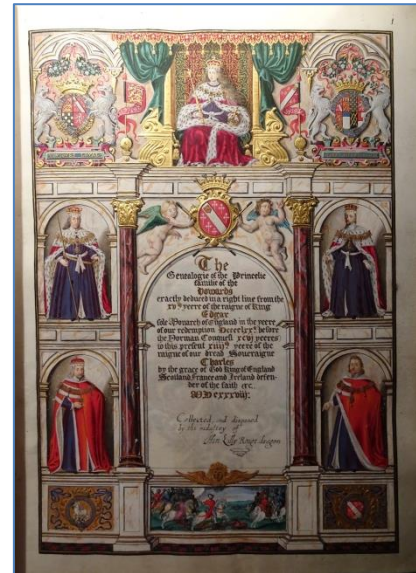 1
The
Genealogie of the Princelie
familie of the
Howards
exactly deduced in a right line from the
xvth yeere of the raigne of King
Edgar
sole Monarch of England in the yeere
of our redemption
before
the Norman Conquest xcvj yeeres
to this present xiiijth yeere of the
raigne of our dread Soueraigne
Charles
by the grace of God King of England
Scotland, France and Ireland defen-
der of the faith etc.
Collected, and disposed
by the industry of